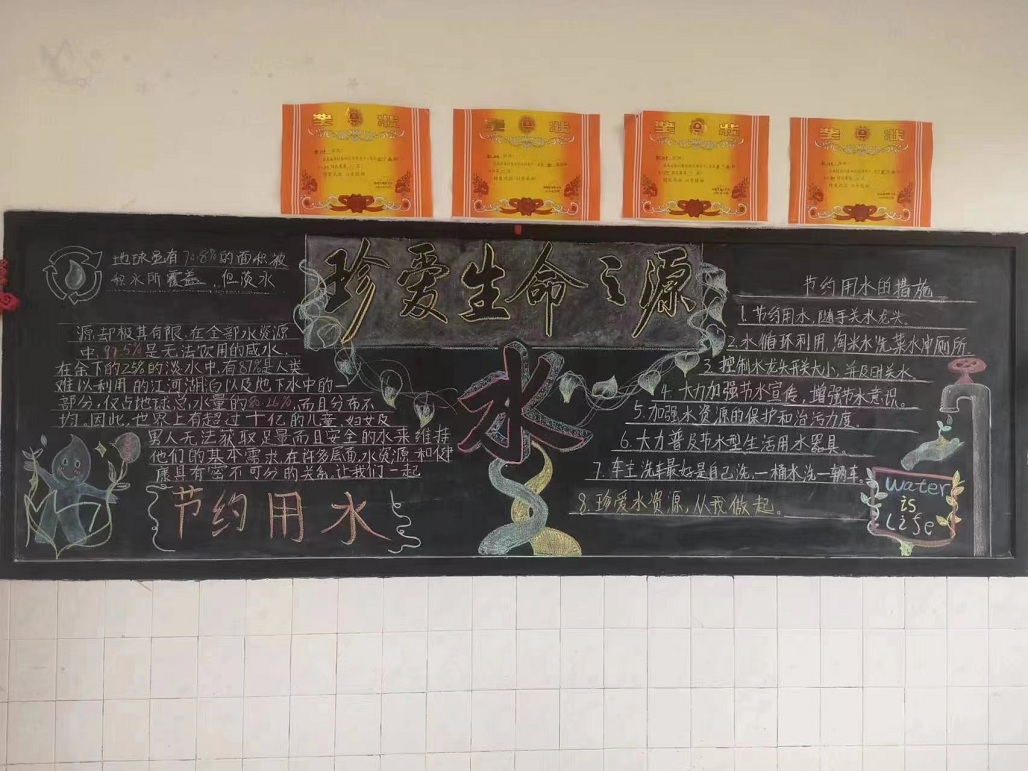 奖状
奖状
奖状
奖状
珍爱生命之源
水
地球虽有70.8%的面积被
积水所覆盖,但淡水
源却极其有限,在全部水资源
中,97.5%是无法饮用的咸水,
在余下的2.5%的淡水中,有87%是人类
难以利用的
江河湖泊以及地下水中的一
部分,仅占地球总水量的0.26%,而且分布不
均,因此,世界上有超过十亿的儿童、妇女及
男人无法获取足量而且安全的水来维持
他们的基本需求,在许多层面,水资源和健
康具有密不可分的关系,让我们一起
节约用水
节约用水的措施
1.节约用水,随手关水龙头、
2.水循环利用,淘米水洗菜水冲厕所.
3.控制水龙头开关大小,并及时关水
4.大力加强节水宣传,增强节水意识。
5.加强水资源的保护和治污力度
6.大力普及节水型生活用水器具.
7.车主洗车最好是自己洗,一桶水洗一辆车。
8.珍爱水资源,从我做起。
water
is
life